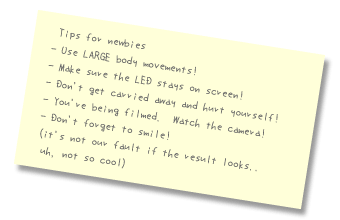 Tips for newbies
- Use LARGE body movements!
- Make sure the LED stays on screen!
- Don't get carried away and hurt yourself!
- You've being filmed.  Watch the camera!
- Don't forget to smile!
(it's not our fault if the result looks..
uh, not so cool)